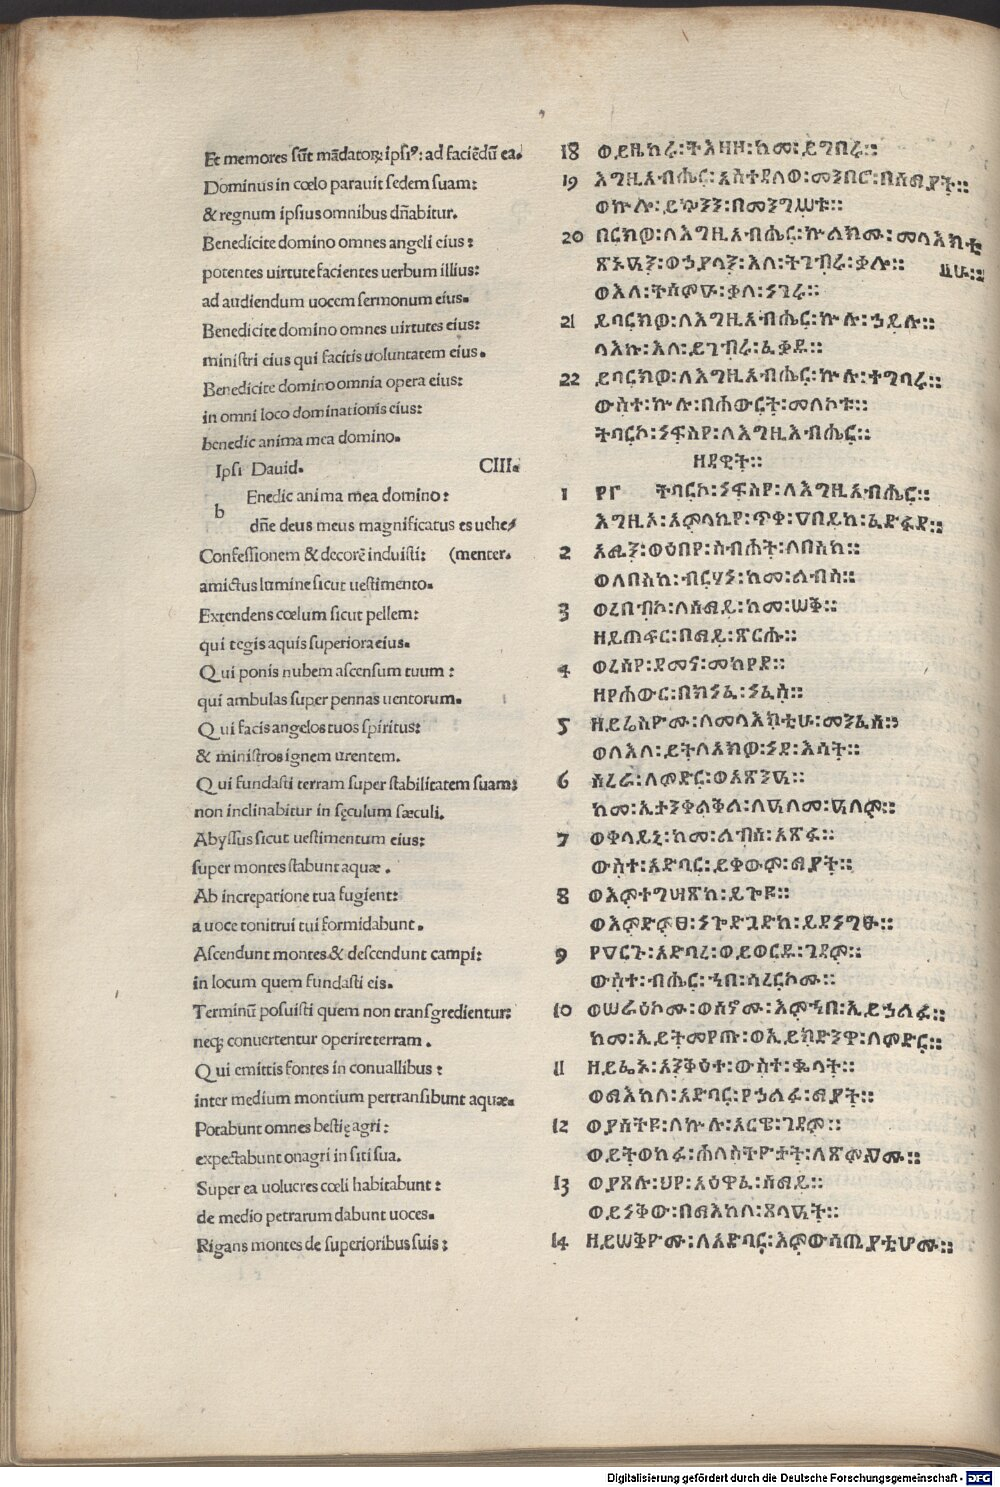 Et memores sūt mādatoꝝ ipsiꝰ: ad faciēdū ea.
Dominus in cœlo parauit sedem suam:
& regnum ipsius omnibus dn̄abitur.
Benedicite domino omnes angeli eius:
potentes uirtute facientes uerbum illius:
ad audiendum uocem sermonum eius.
Benedicite domino omnes uirtutes eius:
ministri eius qui facitis uoluntatem eius.
Benedicite domino omnia opera eius:
in omni loco dominationis eius:
benedic anima mea domino.
Ipsi Dauid. CIII.
b Enedic anima mea domino:
dn̄e deus meus magnificatus es uehe/
Confessionem & decorē induisti: (menter.
amictus lumine sicut uestimento.
Extendens cœlum sicut pellem:
qui tegis aquis superiora eius.
Qui ponis nubem ascensum tuum:
qui ambulas super pennas uentorum.
Qui facis angelos tuos spiritus:
& ministros ignem urentem.
Qui fundasti terram super stabilitatem suam:
non inclinabitur in sęculum sæculi.
Abyssus sicut uestimentum eius:
super montes stabunt aquæ.
Ab increpatione tua fugient:
a uoce tonitrui tui formidabunt.
Ascendunt montes & descendunt campi:
in locum quem fundasti eis.
Terminū posuisti quem non transgredientur:
neqꝫ conuertentur operire terram.
Qui emittis fontes in conuallibus:
inter medium montium pertransibunt aquæ.
Potabunt omnes bestię agri:
expectabunt onagri in siti sua.
Super ea uolucres cœli habitabunt:
de medio petrarum dabunt uoces.
Rigans montes de superioribus suis:
18 ወይዜከሩ፡ትእዛዘ፡ከመ፡ይግበሩ።
19 እግዚአብሔር፡አስተዳለወ፡መንበሮ፡በሰማያት።
ወኵሎ፡ይኴንን፡በመንግሥቱ።
20 በርክዎ፡ለእግዚአብሔር፡ኵልክሙ፡መላእክቲ
ሁ።
ጽኑዓን፡ወኃያላን፡እለ፡ትገብሩ፡ቃሎ።
ወእለ፡ትሰምዑ፡ቃለ፡ነገሩ።
21 ይባርክዎ፡ለእግዚአብሔር፡ኵሉ፡ኃይሉ።
ላእኩ፡እለ፡ይገብሩ፡ፈቃዶ።
22 ይባርክዎ፡ለእግዚአብሔር፡ኵሉ፡ተግባሩ።
ውስተ፡ኵሉ፡በሐውርት፡መለኮቱ።
ትባርኮ፡ነፍስየ፡ለእግዚአብሔር።
ዘዳዊት።
1 ፻፫ ትባርኮ፡ነፍስየ፡ለእግዚአብሔር።
እግዚኦ፡አምላኪየ፡ጥቀ፡ዐበይከ፡ፈድፋደ።
2 አሚነ፡ወሠናየ፡ስብሐት፡ለበስከ።
ወለበስከ፡ብርሃነ፡ከመ፡ልብስ።
3 ወረበቦ፡ለሰማይ፡ከመ፡ሠቅ።
ዘይጠፍር፡በማይ፡ጽርሖ።
4 ወረሰየ፡ደመና፡መከየዶ።
ዘየሐውር፡በክነፈ፡ነፋስ።
5 ዘይሬስዮሙ፡ለመላእክቲሁ፡መንፈሰ።
ወለእለ፡ይትለአክዎ፡ነደ፡እሳት።
6 ሳረራ፡ለምድር፡ወአጽንዓ።
ከመ፡ኢታንቀልቅል፡ለዓለመ፡ዓለም።
7 ወቀላይኒ፡ከመ፡ልብስ፡አጽፋ።
ውስተ፡አድባር፡ይቀውም፡ማያት።
8 ወእምተግሣጽከ፡ይጐዩ።
ወእምድምፀ፡ነጐድጓድከ፡ይደነግፁ።
9 የዐርጉ፡አድባረ፡ወይወርዱ፡ገዳም።
ውስተ፡ብሔር፡ኀበ፡ሳረርኮሙ።
10 ወሠራዕኮሙ፡ወሰኖሙ፡እምኀበ፡ኢይኃልፉ።
ከመ፡ኢይትመየጡ፡ወኢይክድንዋ፡ለምድር።
11 ዘይፌኑ፡አንቅዕተ፡ውስተ፡ቈላት።
ወማእከለ፡አድባር፡የኃልፉ፡ማያት።
12 ወያሰትዩ፡ለኵሉ፡አርዌ፡ገዳም።
ወይትወከፉ፡ሐለስትዮታት፡ለጽምዖሙ።
13 ወያጸሉ፡ህየ፡አዕዋፈ፡ሰማይ።
ወይነቅው፡በማእከለ፡ጸላዓት።
14 ዘይሠቅዮሙ፡ለአድባር፡እምውሳጤያቲሆሙ።
Digitalisierung gefördert durch die Deutsche Forschungsgemeinschaft - DFG